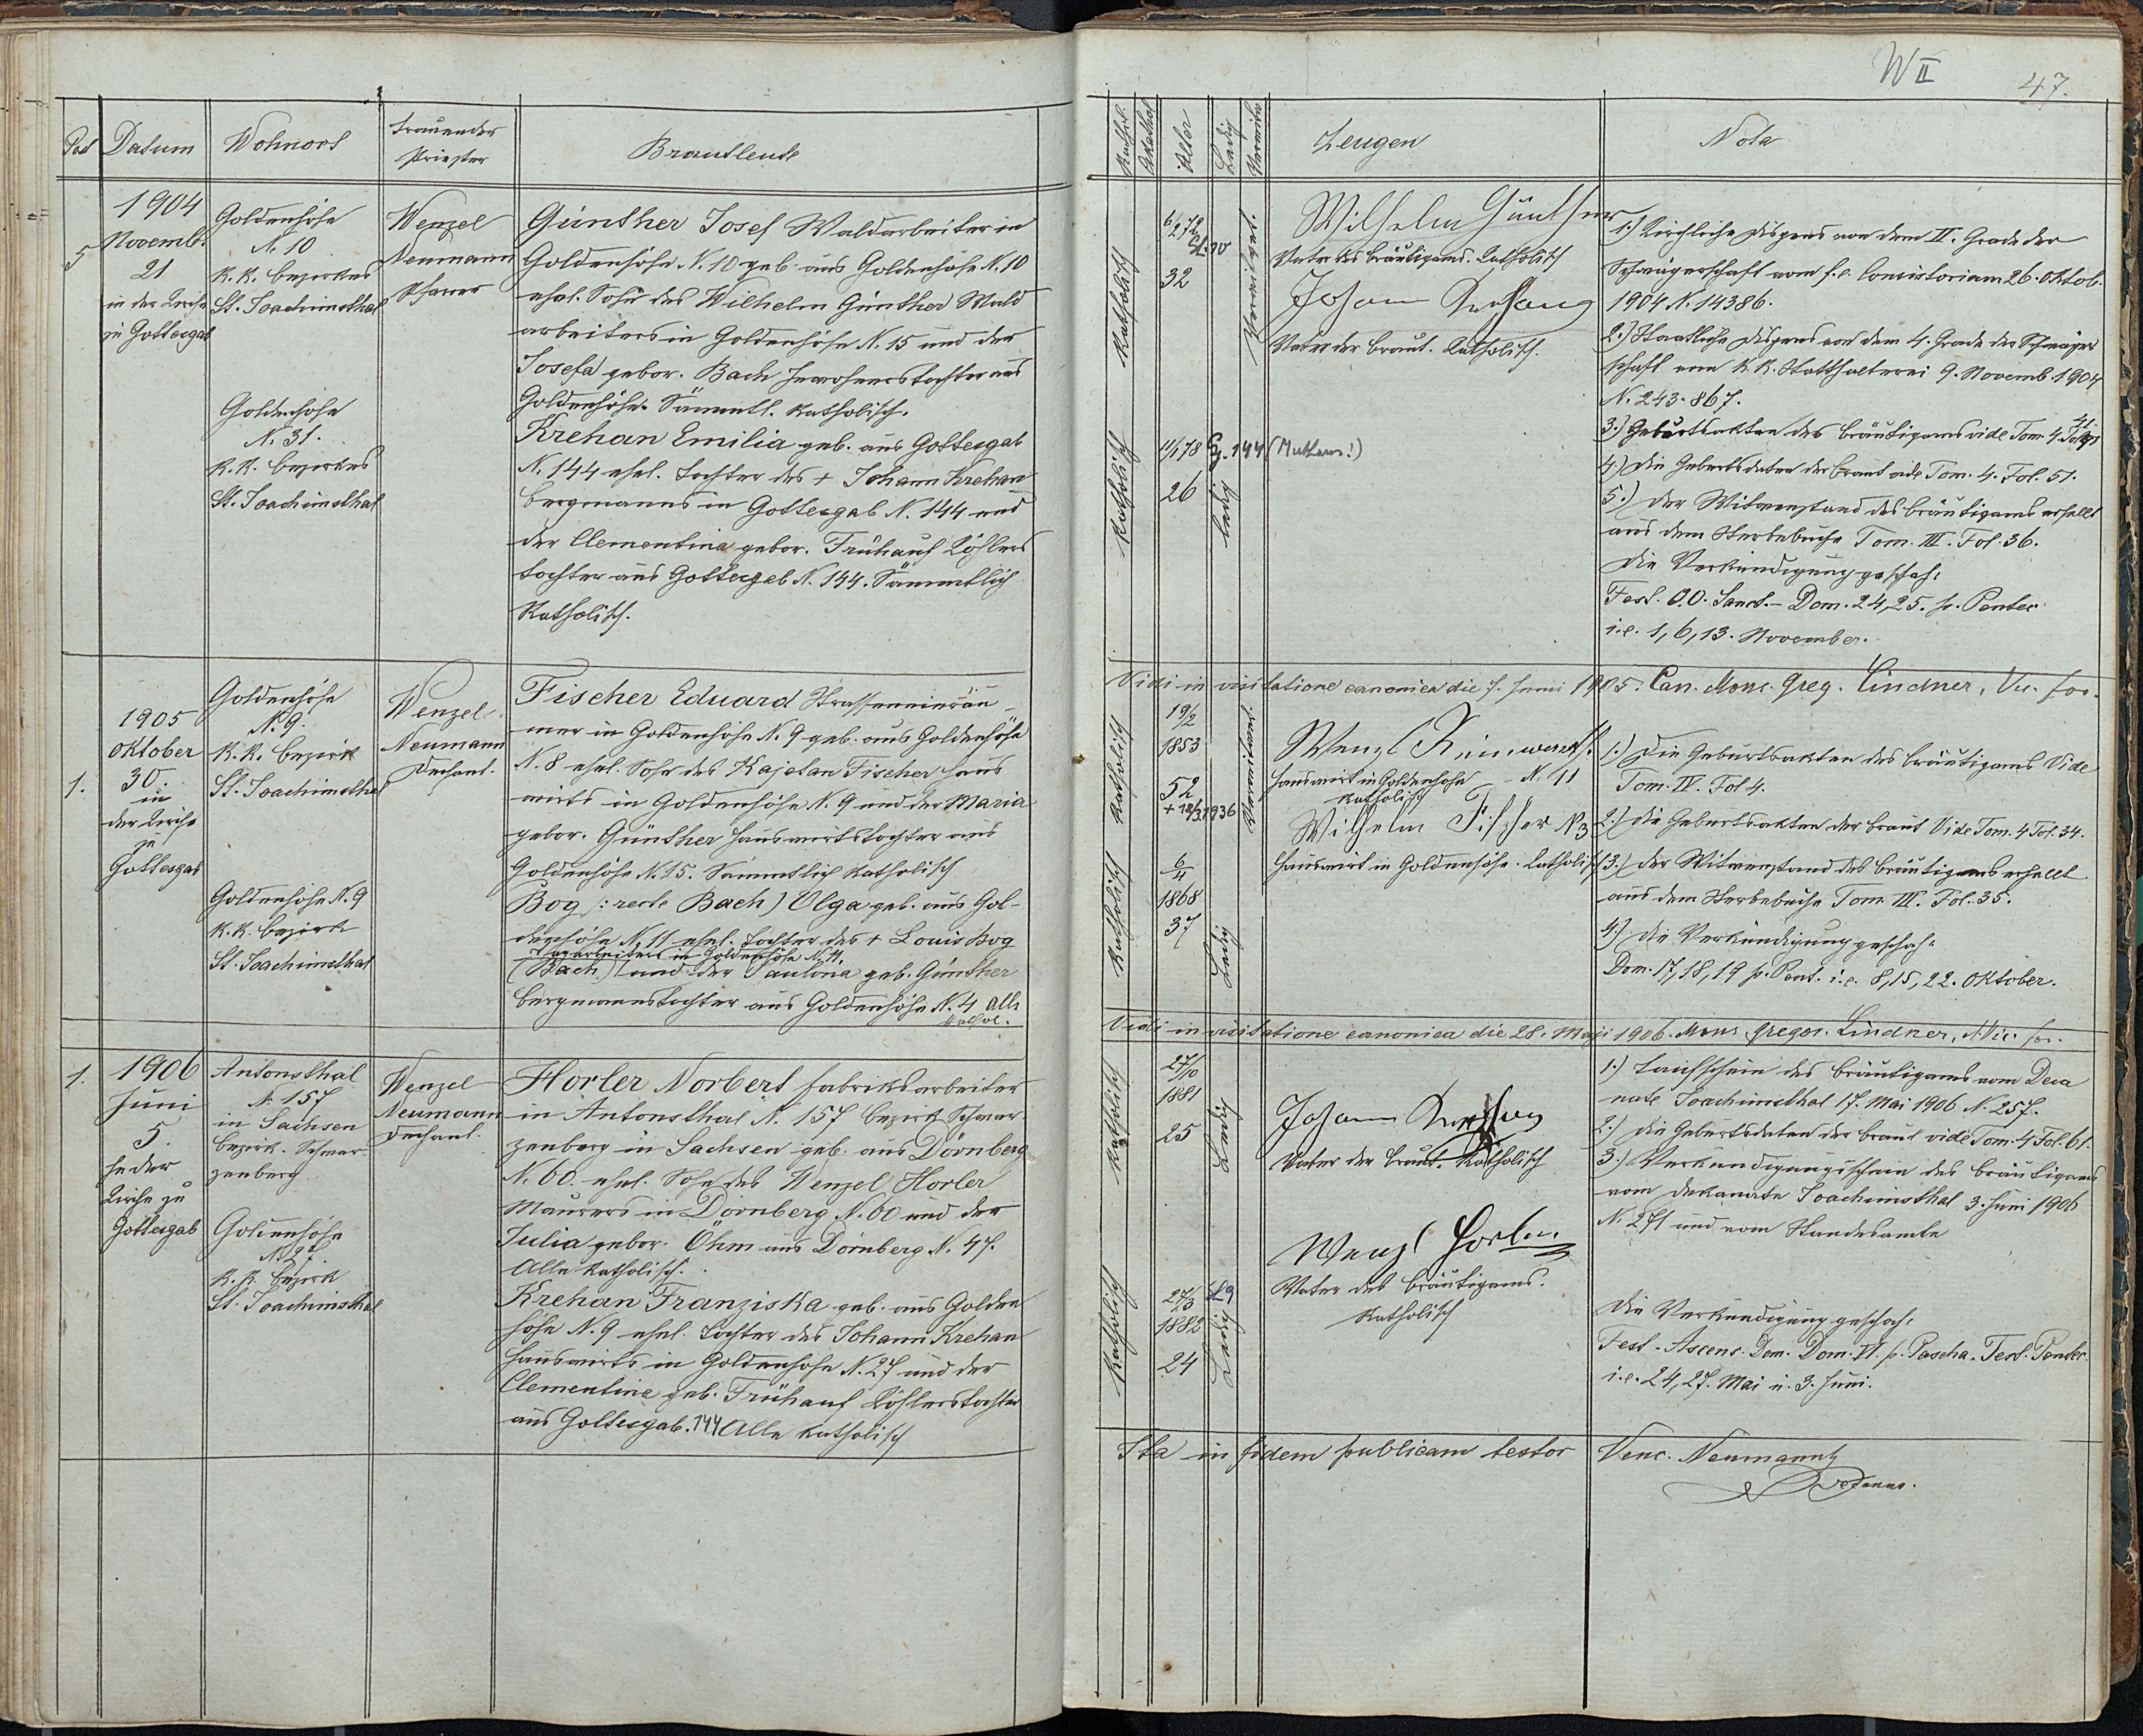 W II
47.
Post Datum Wohnort trauender Priester Brautleute
1904
5 Novemb.
21
in der Kirche
zu Gottesgab
Goldenhöhe
N. 10
K.K. Bezirkes
St. Joachimsthal
Goldenhöhe
N. 31.
K.K. Bezirkes
St. Joachimsthal
Wenzel
Neumann
Pfarrer
Günther Josef Waldarbeiter in
Goldenhöhe N. 10 geb. aus Goldenhöhe N. 10
ehel. Sohn des Wilhelm Günther Wald
arbeiters in Goldenhöhe N. 15 und der
Josefa gebor. Bach Inwohnerstochter aus
Goldenhöhe. Sämmtl. katholisch.
Krehan Emilia geb. aus Gottesgab
N. 144 ehel. Tochter des + Johann Krehan
Bergmanns in Gottesgab N. 144 und
der Clementina gebor. Frühauf Köhlers
tochter aus Gottesgab N. 144. Sämmtlich
Katholisch.
1905
Oktober
1. 30.
in
der Kirche
zu
Gottesgab
Goldenhöhe
N. 9.
K.K. Bezirk
St. Joachimsthal
Goldenhöhe N. 9
K.K. Bezirk
St. Joachimsthal
Wenzel
Neumann
Dechant.
Fischer Eduard Strasseneinräu-
mer in Goldenhöhe N. 9 geb. aus Goldenhöhe
N. 8 ehel. Sohn des Kajetan Fischer Haus
wirts in Goldenhöhe N. 9 und der Maria
gebor. Günther Hauswirtstochter aus
Goldenhöhe N. 15. Sämmtlich katholisch
Bog (: recte Bach) Olga geb. aus Gol-
denhöhe N. 11 ehel. Tochter des + Louis Bog
Tagarbeiters in Goldenhöhe N. 11.
(Bach) und der Paulina geb. Günther
Bergmannstochter aus Goldenhöhe N. 4 alle
kathol.
1. 1906
Juni
5.
In der
Kirche zu
Gottesgab
Antonsthal
N. 157
in Sachsen
Bezirk. Schwar-
zenberg
Goldenhöhe
N. 27.
K.K. Bezirk
St. Joachimsthal
Wenzel
Neumann
Dechant.
Horler Norbert Fabriksarbeiter
in Antonsthal N. 157 Bezirk Schwar-
zenberg in Sachsen geb. aus Dörnberg
N. 60. ehel. Sohn des Wenzel Horler
Maurers in Dörnberg N. 60 und der
Julia gebor. Öhm aus Dörnberg N. 47.
Alle katholisch.
Krehan Franziska geb. aus Golden
höhe N. 9 ehel. Tochter des Johann Krehan
Hauswirts in Goldenhöhe N. 27 und der
Clementine geb. Frühauf Köhlerstochter
aus Gottesgab. 144 Alle katholisch
Kathol. Akathol. Alter Ledig Verwitw. Zeugen Nota
Katholisch
32
Verwitwet.
Wilhelm Günther
Vater des Bräutigams. Katholisch
Johann Krehan
Vater der Braut. Katholisch.
Katholisch
11/1 78 Gg. 144
26
ledig
1.) Kirchliche Dispens von dem II. Grade der
Schwägerschaft vom f.e. Consistorium 26. Oktob.
1904 N. 14386.
2.) Staatliche Dispens von dem 4. Grade der Schwäger
schaft von K.K. Statthalterei 9. Novemb 1904
N. 243.867.
3.) Geburtsakten des Bräutigams vide Tom. 4. Fol. 41
4.) Die Geburtsdaten der Braut vide Tom. 4. Fol. 51.
5.) Der Witwerstand des Bräutigams erhellt
aus dem Sterbebuche Tom. III. Fol. 36.
Die Verkündigung geschah:
Fest. O.O. Sanct.- Dom. 24, 25. p. Pentec.
i.e. 1, 6, 13. November.
Vidi in visitatione canonica die 7. Juni 1905. Can. Mons. Greg. Lindner, Vic. for.
Katholisch
19/2
1853
52
+ 18/3 1936
Verwitwet
Wilhelm Fischer N 3
Hauswirt in Goldenhöhe. Katholisch
Hauswirt in Goldenhöhe N. 11
katholisch
Katholisch
6/4
1868
37
Ledig
1.) Die Geburtsakten des Bräutigams Vide
Tom. IV. Fol 4.
2.) Die Geburtsakten der Braut Vide Tom. 4 Fol. 34.
3.) Der Witwerstand des Bräutigams erhellt
aus dem Sterbebuche Tom. III. Fol. 35.
4.) Die Verkündigung geschah:
Dom. 17, 18, 19 p. Pent. i.e. 8, 15, 22. Oktober.
Vidi in visitatione canonica die 28. Maji 1906. Mons. Gregor. Lindner, Vic. for.
Katholisch
27/10
1881
25
Ledig
Johann Krehan
Vater der Braut. Katholisch
Wenzl Horler
Vater des Bräutigams.
Katholisch
Katholisch
27/3
1882
24
Ledig
1.) Taufschein des Bräutigams vom Deca
nate Joachimsthal 17. Mai 1906 N. 257.
2.) Die Geburtsdaten der Braut vide Tom. 4 Fol. 61.
3.) Verkündigungsschein des Bräutigams
vom Dekanate Joachimsthal 3. Juni 1906
N. 271 und vom Standesamte
Die Verkündigung geschah:
Fest. Ascens. Dom. Dom. VI. p. Pascha. Fest. Pentec.
i.e. 24, 27. Mai u. 3. Juni.
Ita in fidem publicam testor Venc. Neumann